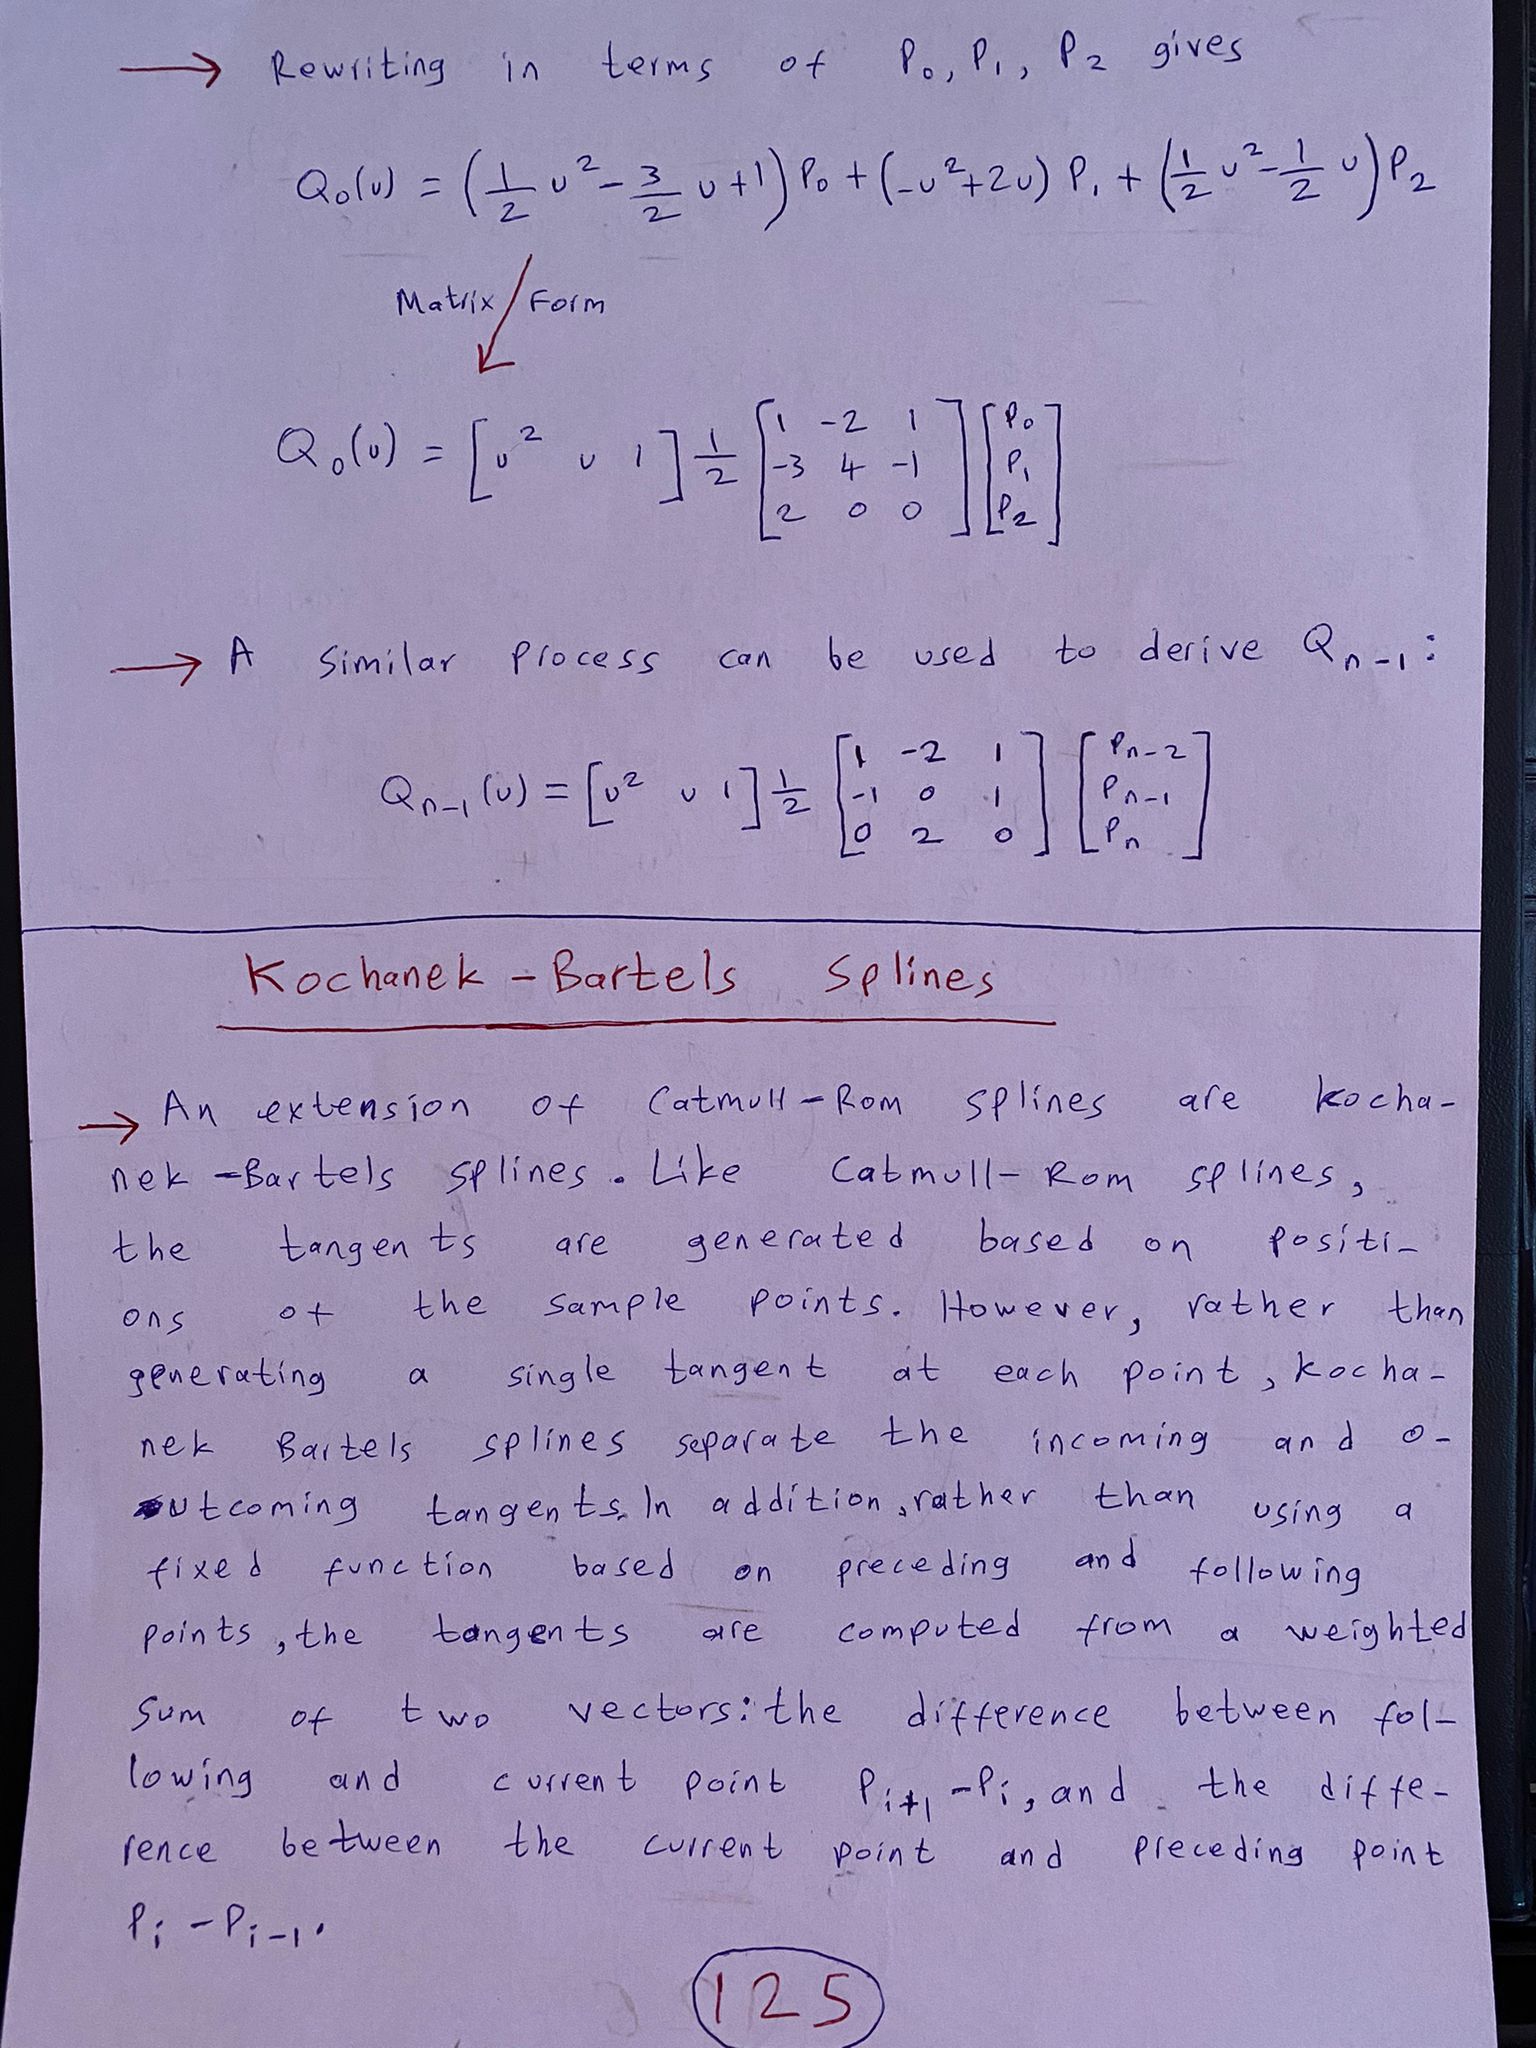 → Rewriting in terms of P₀, P₁, P₂ gives
Q₀(u) = (1/2 u² - 3/2 u + 1) P₀ + (-u² + 2u) P₁ + (1/2 u² - 1/2 u) P₂
Matrix Form
Q₀(u) = [u² u 1] 1/2 [1 -2 1; -3 4 -1; 2 0 0] [P₀; P₁; P₂]
→ A similar process can be used to derive Qₙ₋₁:
Qₙ₋₁(u) = [u² u 1] 1/2 [1 -2 1; -1 0 1; 0 2 0] [Pₙ₋₂; Pₙ₋₁; Pₙ]
Kochanek-Bartels Splines
→ An extension of Catmull-Rom splines are kocha-
nek-Bartels splines. Like Catmull-Rom splines,
the tangents are generated based on positi-
ons of the sample points. However, rather than
generating a single tangent at each point, kocha-
nek Bartels splines separate the incoming and o-
utcoming tangents. In addition, rather than using a
fixed function based on preceding and following
points, the tangents are computed from a weighted
sum of two vectors: the difference between fol-
lowing and current point Pᵢ₊₁ - Pᵢ, and the diffe-
rence between the current point and preceding point
Pᵢ - Pᵢ₋₁.
125